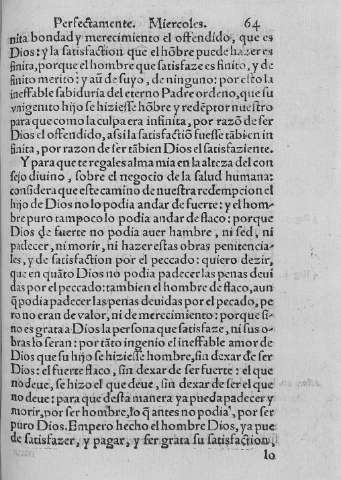 Perfectamente. Miercoles. 64
nita bondad y merecimiento el offendido, que es
Dios: y la satisfaction que el hõbre puede hazer es
finita, porque el hombre que satisfaze es finito, y de
finito merito: y aũ de suyo, de ninguno: por esto la
ineffable sabiduria del eterno Padre ordeno, que su
vnigenito hijo se hiziesse hõbre y redẽptor nuestro
para que como la culpa era infinita, por razõ de ser
Dios el offendido, assi la satisfactiõ fuesse tãbien in
finita, por razon de ser tãbien Dios el satisfaziente.
Y para que te regales alma mia en la alteza del con
sejo diuino, sobre el negocio de la salud humana:
considera que este camino de nuestra redempcion el
hijo de Dios no lo podia andar de fuerte: y el hom-
bre puro tampoco lo podia andar de flaco: porque
Dios de fuerte no podia auer hambre, ni sed, ni
padecer, ni morir, ni hazer estas obras penitencia-
les, y de satisfaction por el peccado: quiero dezir,
que en quãto Dios no podia padecer las penas deui
das por el peccado: tambien el hombre de flaco, aun
q̃ podia padecer las penas deuidas por el pecado, pe
ro no eran de valor, ni de merecimiento: porque si-
no es grata a Dios la persona que satisfaze, ni sus o-
bras lo seran: por tãto ingenio el ineffable amor de
Dios que su hijo se hiziesse hombre, sin dexar de ser
Dios: el fuerte flaco, sin dexar de ser fuerte: el que
no deue, se hizo el que deue, sin dexar de ser el que
no deue: para que desta manera ya pueda padecer y
morir, por ser hombre, lo q̃ antes no podia, por ser
puro Dios. Empero hecho el hombre Dios, ya pue
de satisfazer, y pagar, y ser grata su satisfaction,
lo